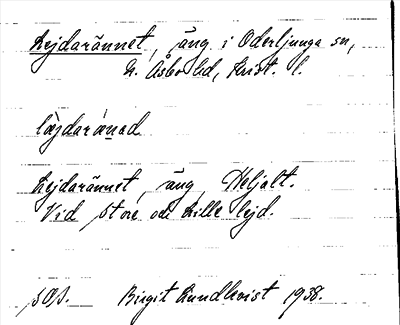 Lejdarännet, äng i Oderljunga sn,
N. Åsbo hd, Krist. l.
læjdarænad
Lejdarännet, äng, Heljalt.
Vid Store och Lille lejd.
Birgit Lundkvist 1938.